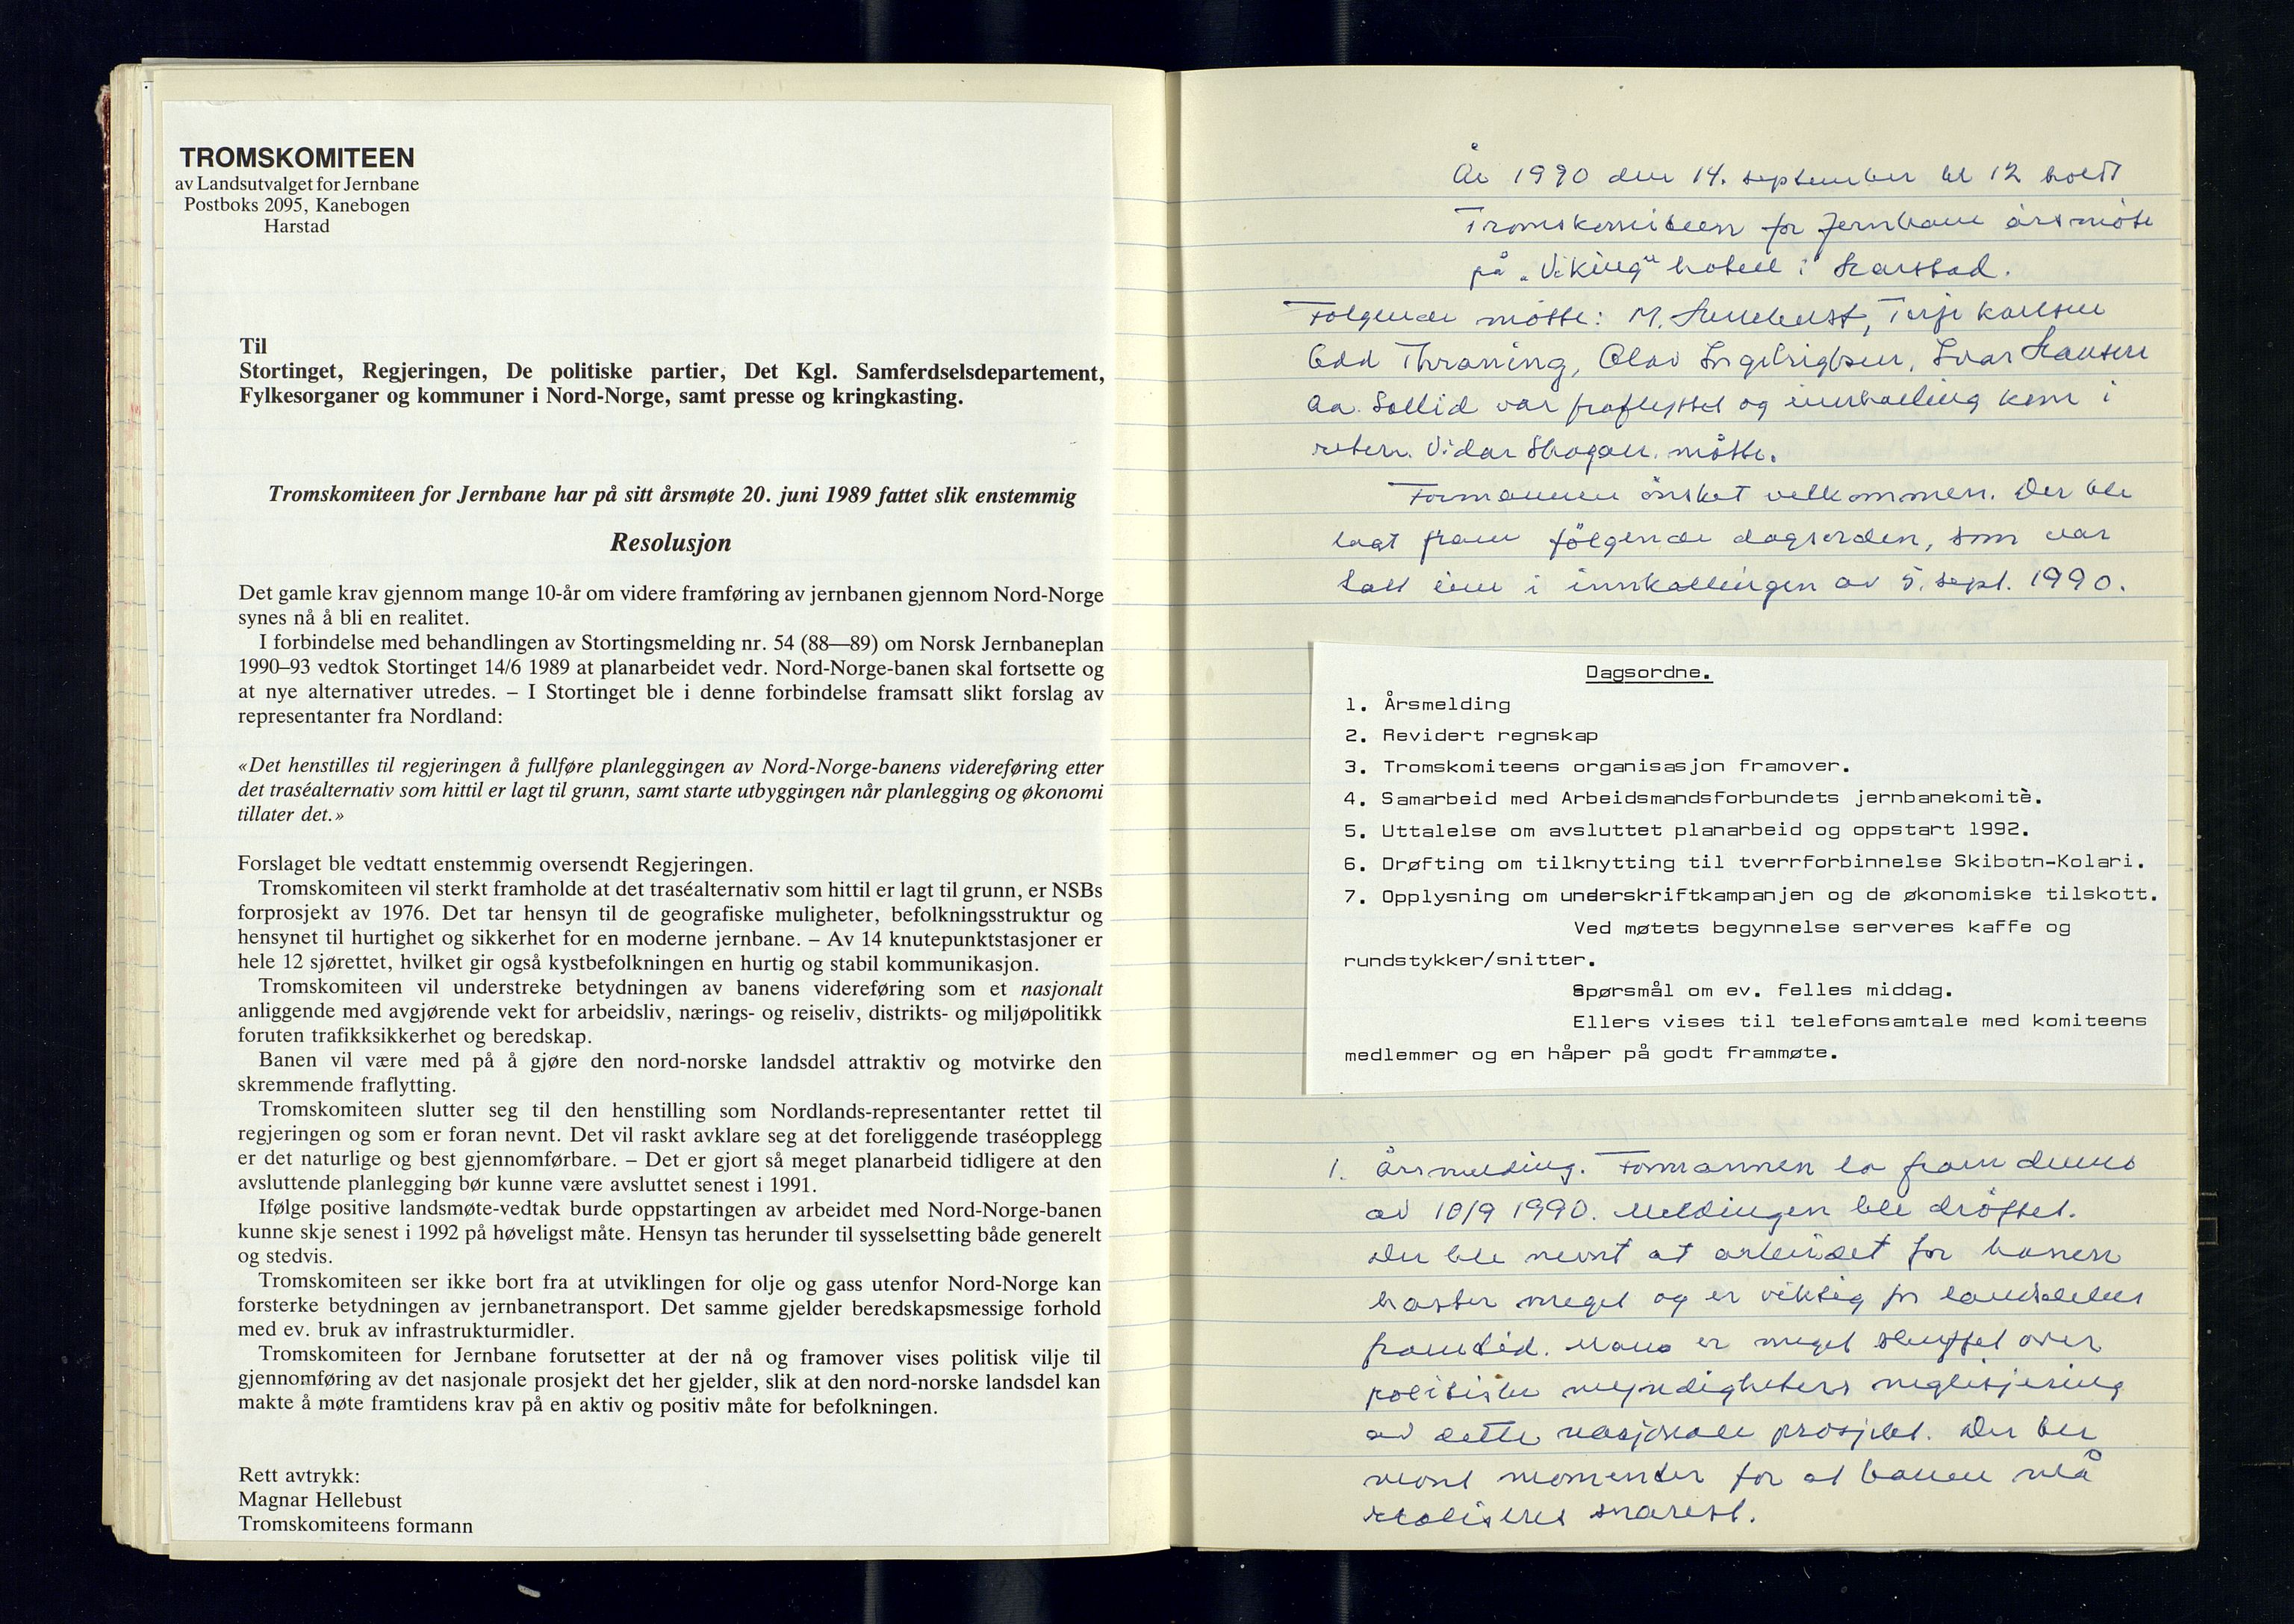 TROMSKOMITEEN
av Landsutvalget for Jernbane
Postboks 2095, Kanebogen
Harstad
Til
Stortinget, Regjeringen, De politiske partier, Det Kgl. Samferdselsdepartement,
Fylkesorganer og kommuner i Nord-Norge, samt presse og kringkasting.
Tromskomiteen for Jernbane har på sitt årsmøte 20. juni 1989 fattet slik enstemmig
Resolusjon
Det gamle krav gjennom mange 10-år om videre framføring av jernbanen gjennom Nord-Norge
synes nå å bli en realitet.
I forbindelse med behandlingen av Stortingsmelding nr. 54 (88—89) om Norsk Jernbaneplan
1990–93 vedtok Stortinget 14/6 1989 at planarbeidet vedr. Nord-Norge-banen skal fortsette og
at nye alternativer utredes. – I Stortinget ble i denne forbindelse framsatt slikt forslag av
representanter fra Nordland:
«Det henstilles til regjeringen å fullføre planleggingen av Nord-Norge-banens videreføring etter
det traséalternativ som hittil er lagt til grunn, samt starte utbyggingen når planlegging og økonomi
tillater det.»
Forslaget ble vedtatt enstemmig oversendt Regjeringen.
Tromskomiteen vil sterkt framholde at det traséalternativ som hittil er lagt til grunn, er NSBs
forprosjekt av 1976. Det tar hensyn til de geografiske muligheter, befolkningsstruktur og
hensynet til hurtighet og sikkerhet for en moderne jernbane. – Av 14 knutepunktstasjoner er
hele 12 sjørettet, hvilket gir også kystbefolkningen en hurtig og stabil kommunikasjon.
Tromskomiteen vil understreke betydningen av banens videreføring som et nasjonalt
anliggende med avgjørende vekt for arbeidsliv, nærings- og reiseliv, distrikts- og miljøpolitikk
foruten trafikksikkerhet og beredskap.
Banen vil være med på å gjøre den nord-norske landsdel attraktiv og motvirke den
skremmende fraflytting.
Tromskomiteen slutter seg til den henstilling som Nordlands-representanter rettet til
regjeringen og som er foran nevnt. Det vil raskt avklare seg at det foreliggende traséopplegg
er det naturlige og best gjennomførbare. – Det er gjort så meget planarbeid tidligere at den
avsluttende planlegging bør kunne være avsluttet senest i 1991.
Ifølge positive landsmøte-vedtak burde oppstartingen av arbeidet med Nord-Norge-banen
kunne skje senest i 1992 på høveligst måte. Hensyn tas herunder til sysselsetting både generelt
og stedvis.
Tromskomiteen ser ikke bort fra at utviklingen for olje og gass utenfor Nord-Norge kan
forsterke betydningen av jernbanetransport. Det samme gjelder beredskapsmessige forhold
med ev. bruk av infrastrukturmidler.
Tromskomiteen for Jernbane forutsetter at der nå og framover vises politisk vilje til
gjennomføring av det nasjonale prosjekt det her gjelder, slik at den nord-norske landsdel kan
makte å møte framtidens krav på en aktiv og positiv måte for befolkningen.
Rett avtrykk:
Magnar Hellebust
Tromskomiteens formann
År 1990 den 14. september kl 12 holdt
Tromskomiteen for Jernbane årsmöte
på "Viking" hotell i Harstad.
Følgende møtte: M. Hellebust, Terje Karlsen
Odd Thraning, Olav Ingebrigtsen, Ivar Hansen
Aa. Sollid var fraflyttet og innkalling kom i
retur. Vidar møtte.
Formannen ønsket velkommen. Der ble
lagt fram følgende dagsorden, som var
satt inn i innkallingen av 5. sept. 1990.
Dagsordne.
1. Årsmelding
2. Revidert regnskap
3. Tromskomiteens organisasjon framover.
4. Samarbeid med Arbeidsmandsforbundets jernbanekomitè.
5. Uttalelse om avsluttet planarbeid og oppstart 1992.
6. Drøfting om tilknytting til tverrforbinnelse Skibotn-Kolari.
7. Opplysning om underskriftkampanjen og de økonomiske tilskott.
Ved møtets begynnelse serveres kaffe og
rundstykker/snitter.
Spørsmål om ev. felles middag.
Ellers vises til telefonsamtale med komiteens
medlemmer og en håper på godt frammøte.
1. Årsmelding. Formannen la fram denne
av 10/9 1990. Meldingen ble drøftet.
Der ble nevnt at arbeidet for banen
haster meget og er viktig for landsdelens
framtid. Man er meget skuffet over
politiske myndigheters neglisjering
av dette nasjonale prosjekt. Der ble
nevnt momenter for at banen må
realiseres snarest.